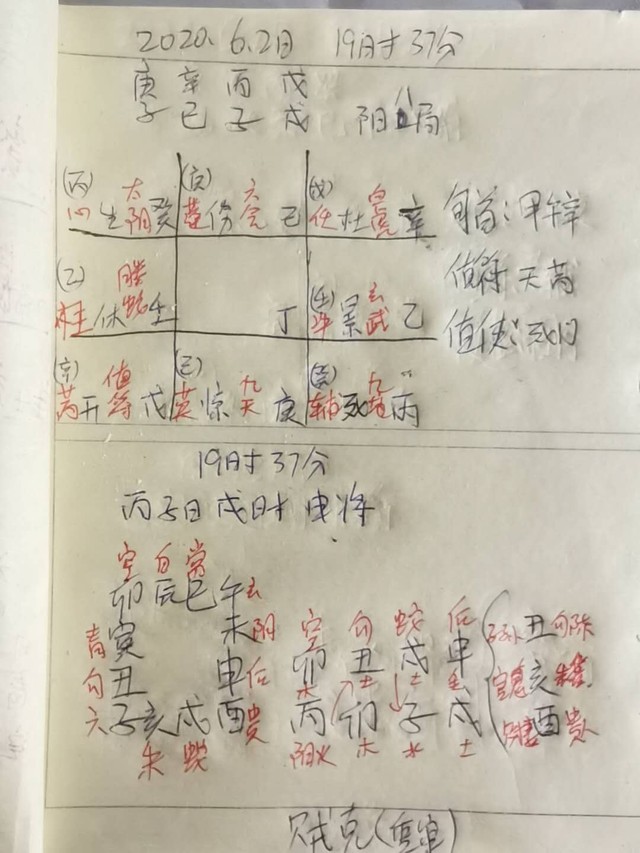 2020.6.2日 19时37分
庚辛丙戊
子巳子戌 阳八局
(丙) 太 (庚) 六 (戊) 白
心生阳癸 蓬伤合己 任杜虎辛 旬首:甲午辛
(乙) 螣 (壬) 玄
柱休蛇壬 丁 冲景武乙 值符天芮
值使:死门
(辛) 值 (己) 九 (癸) 九
芮开符戊 英惊天庚 辅死地丙
19时37分
丙子日 戌时 申将
空白常
卯辰巳午玄
青寅 未阴 空勾蛇后
勾丑 申后 卯丑戌申
六子亥戌酉贵 丙卯子戌
朱蛇 阳火木水土
丑勾陈
官鬼亥朱雀
酉贵
贼克(重审)